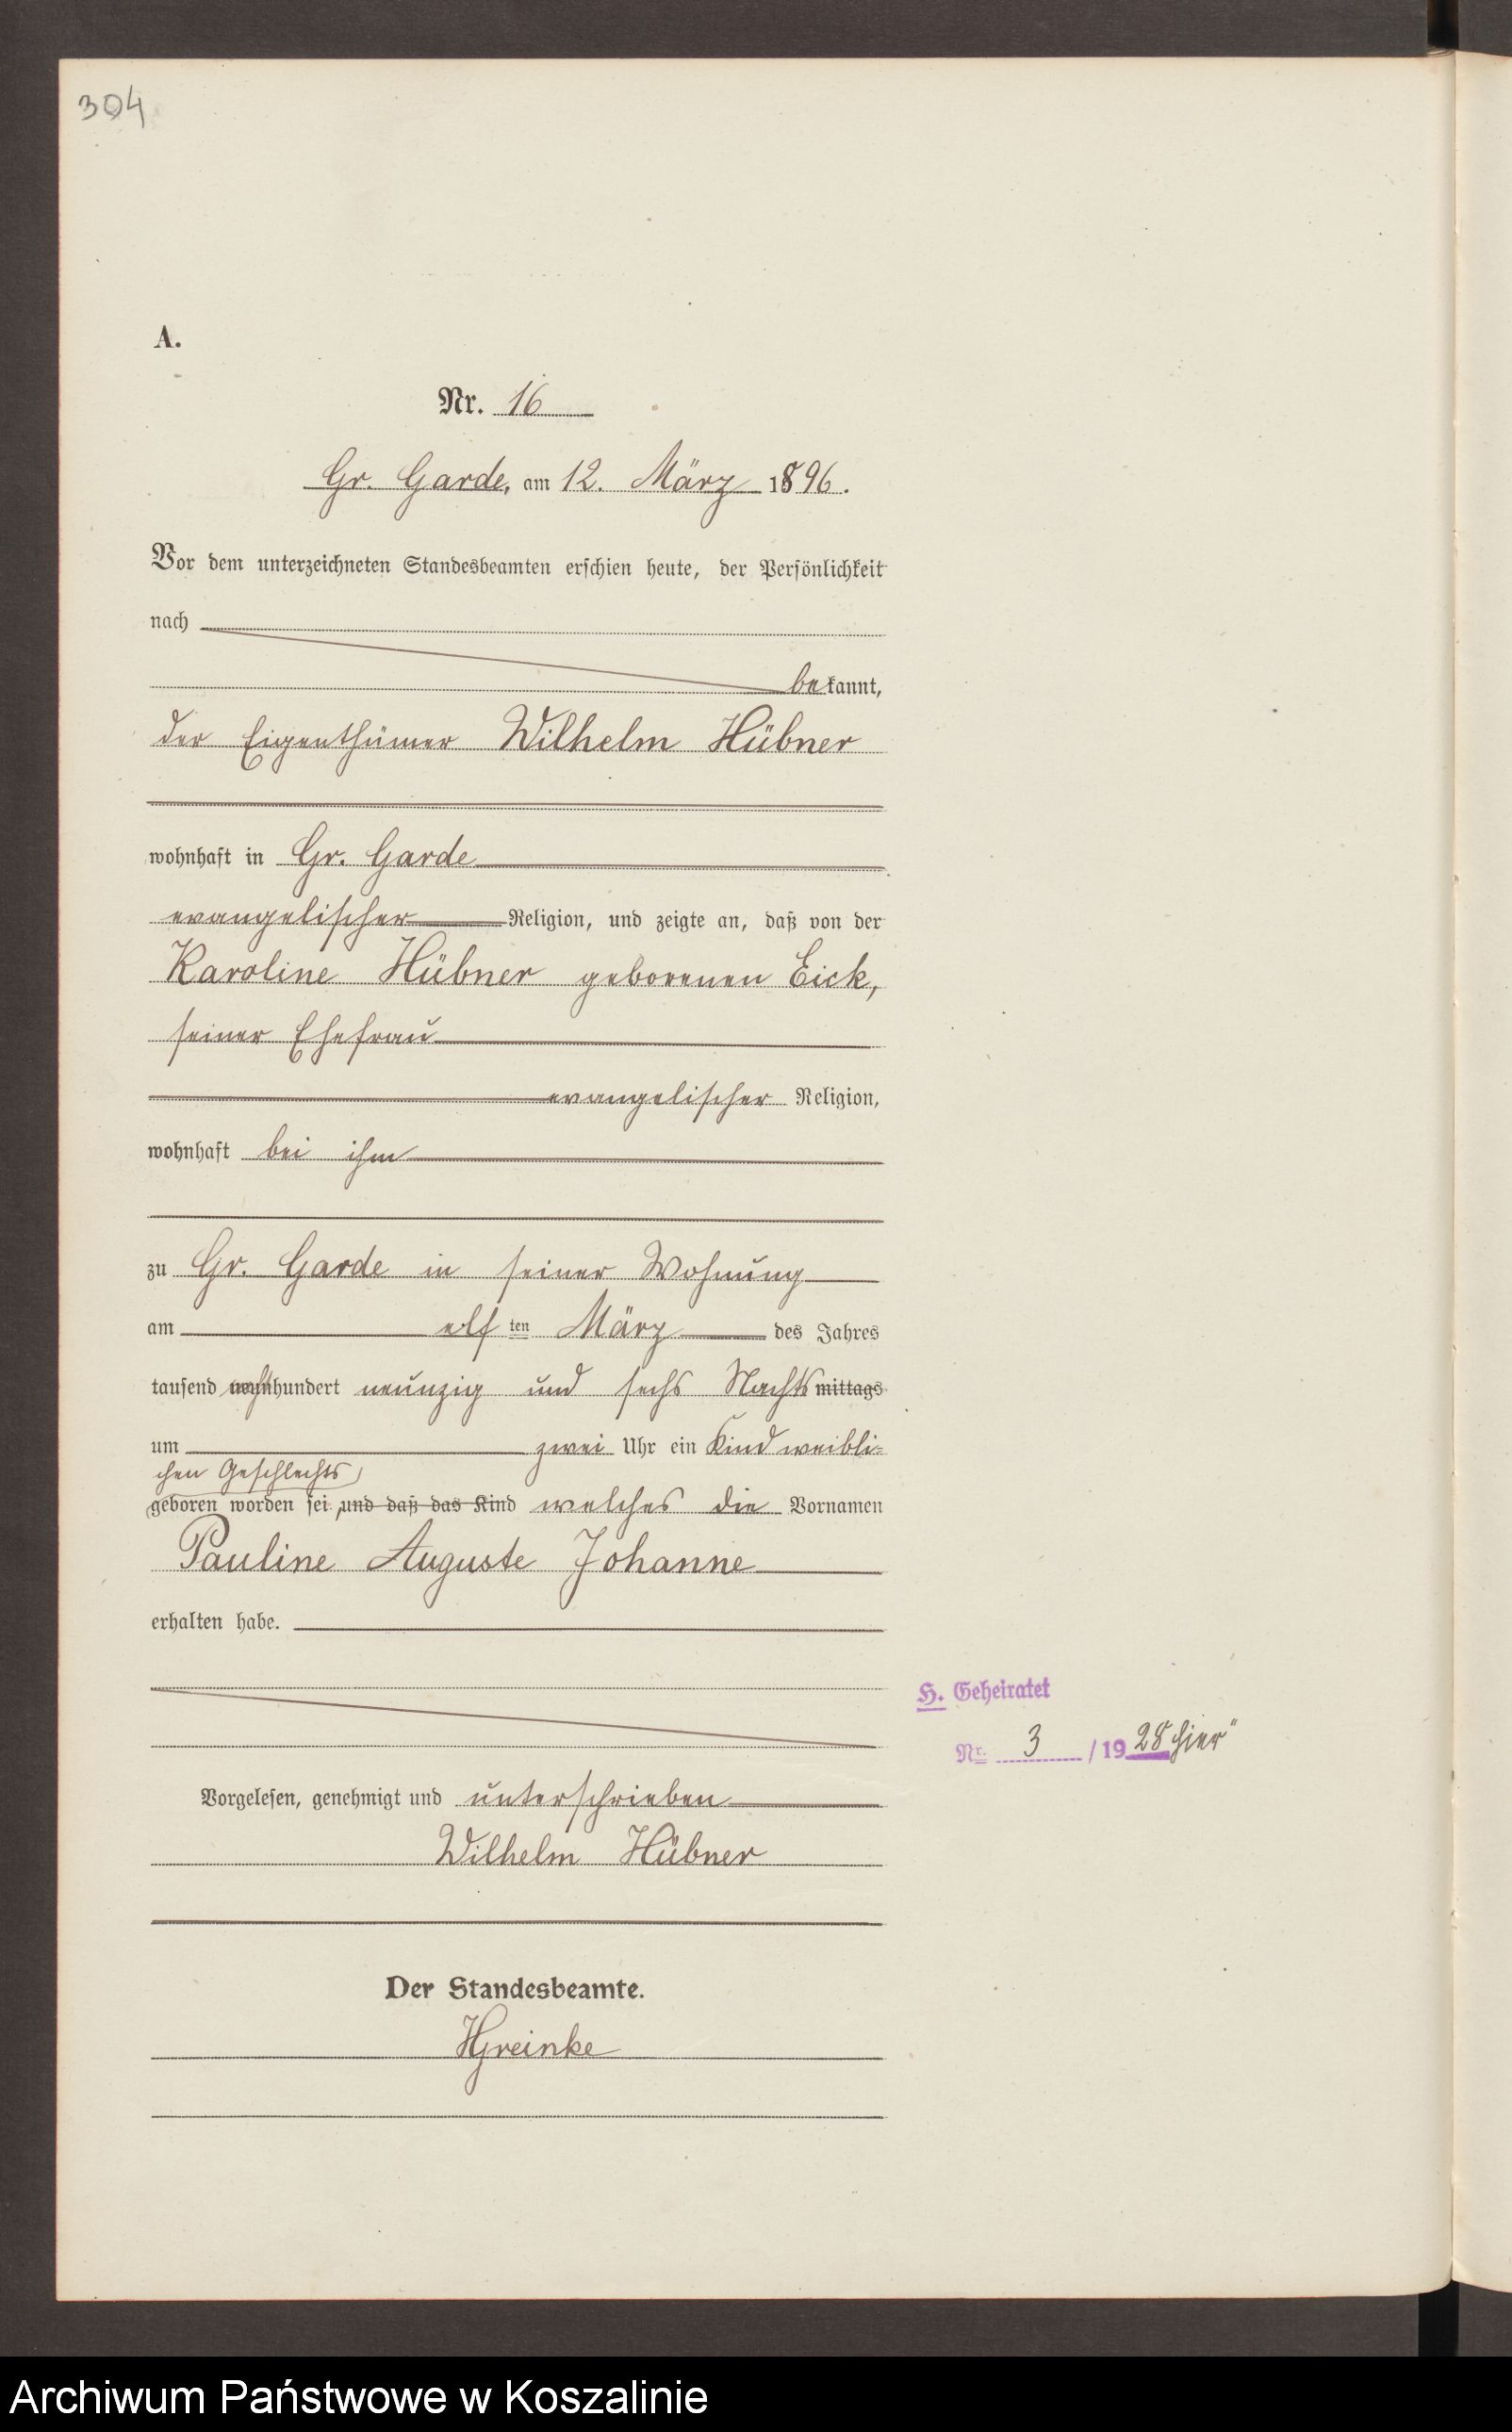 304
A.
Nr. 16
Gr. Garde, am 12. März 1896.
Vor dem unterzeichneten Standesbeamten erschien heute, der Persönlichkeit
nach
bekannt,
der Eigenthümer Wilhelm Hübner
wohnhaft in Gr. Garde
evangelischer Religion, und zeigte an, daß von der
Karoline Hübner geborenen Eick,
seiner Ehefrau
evangelischer Religion,
wohnhaft bei ihm
zu Gr. Garde in seiner Wohnung
am elf ten März des Jahres
tausend achthundert neunzig und sechs Nachts mittags
um zwei Uhr ein Kind weibli-
chen Geschlechts
geboren worden sei, und daß das Kind welches die Vornamen
Pauline Auguste Johanne
erhalten habe.
H. Geheiratet
Nr. 3 /1928 hier"
Vorgelesen, genehmigt und unterschrieben
Wilhelm Hübner
Der Standesbeamte.
HGreinke
Archiwum Państwowe w Koszalinie